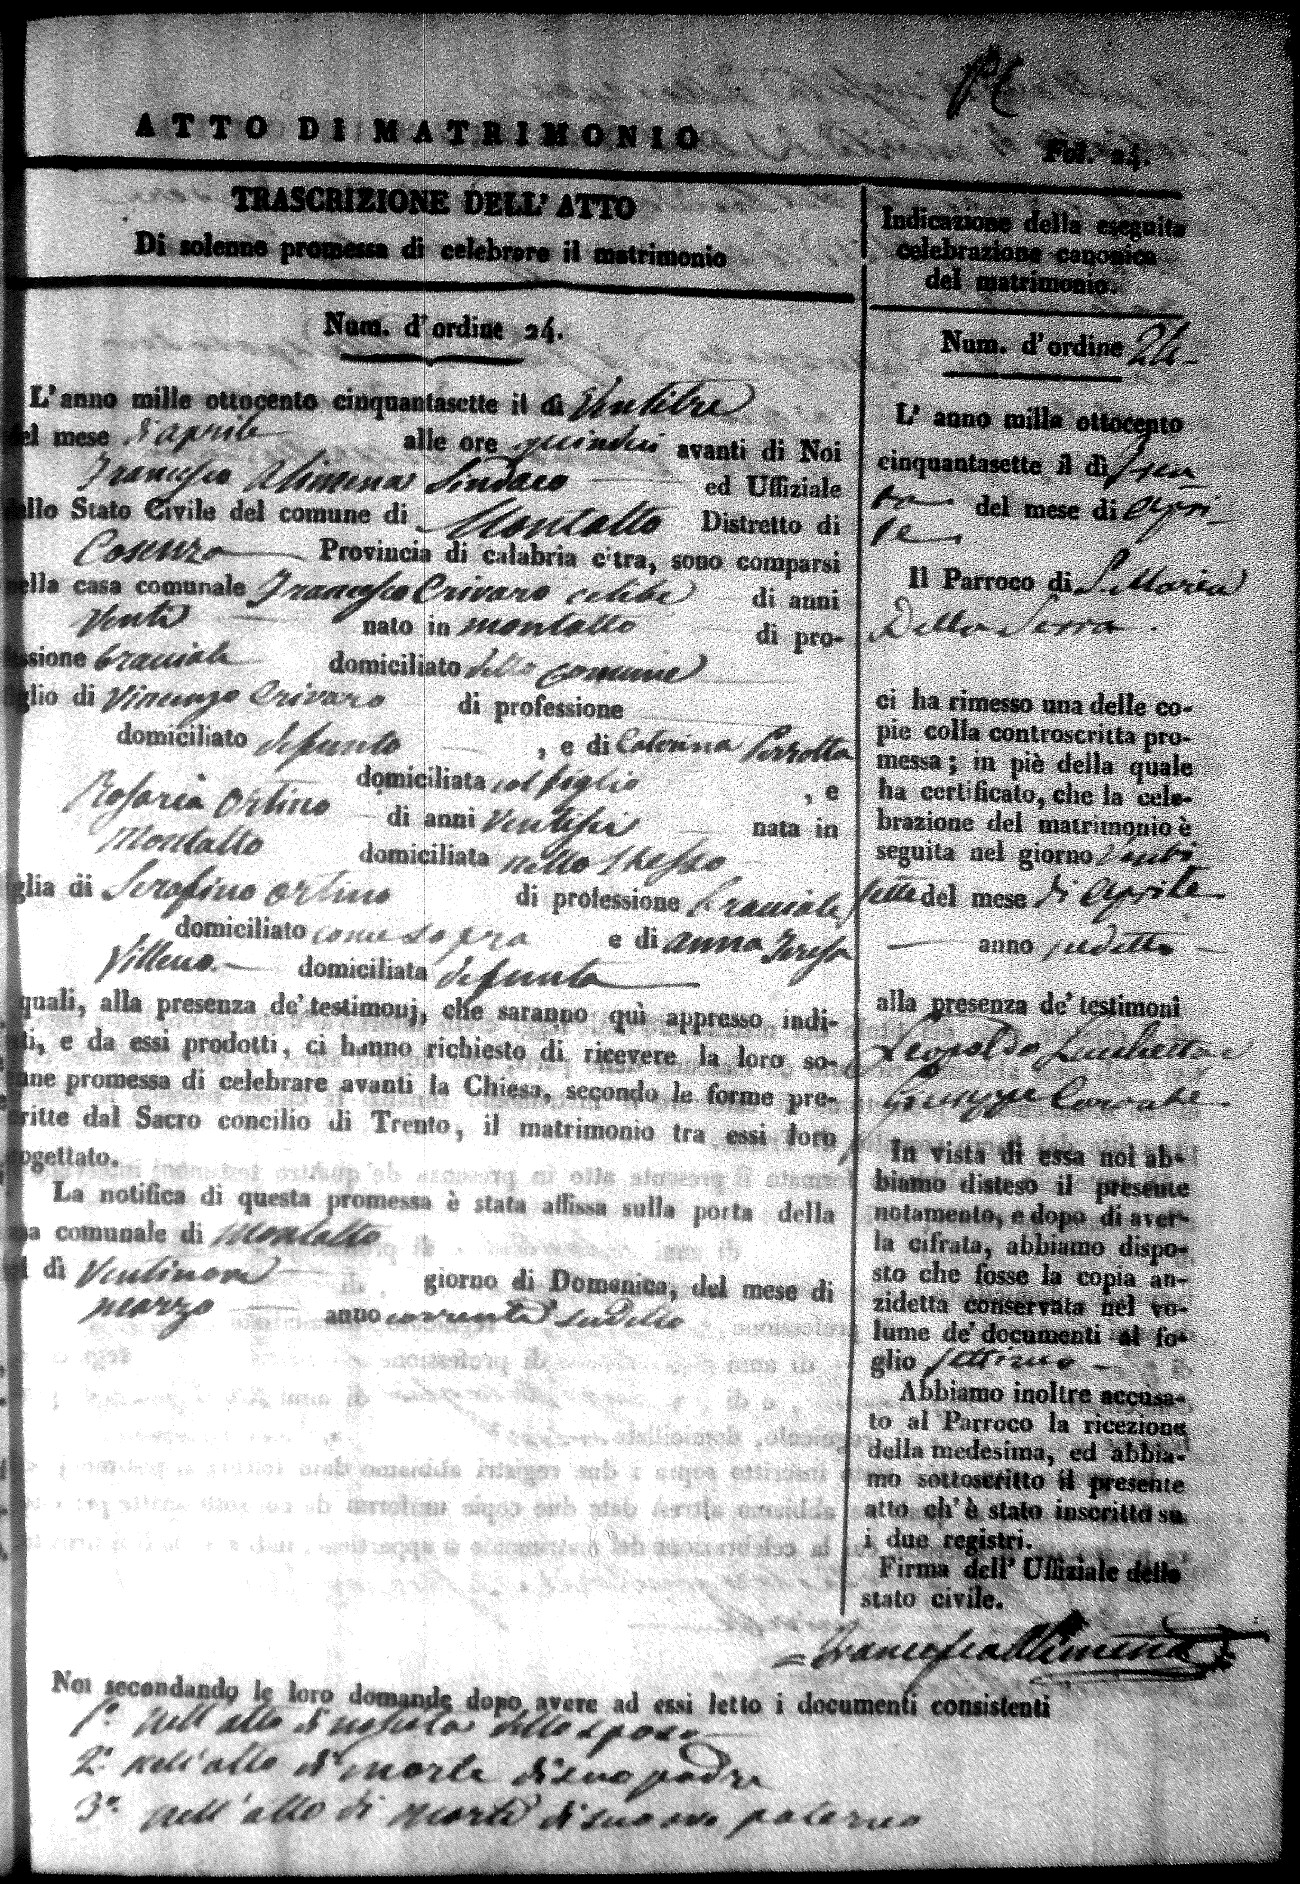 ATTO DI MATRIMONIO
Fol. 24.
TRASCRIZIONE DELL' ATTO
Di solenne promessa di celebrare il matrimonio
Num. d'ordine 24.
L'anno mille ottocento cinquantasette il dì Ventitre
del mese d'aprile alle ore quindici avanti di Noi
Francesco Alimena Sindaco ed Uffiziale
dello Stato Civile del comune di Montalto Distretto di
Cosenza Provincia di calabria citra, sono comparsi
nella casa comunale Francesco Crivaro celibe di anni
Venti nato in Montalto di pro-
fessione bracciale domiciliato detto comune
figlio di Vincenzo Crivaro di professione
domiciliato defunto , e di Caterina Perrotta
domiciliata col figlio , e
Rosaria Ortino di anni ventisei nata in
Montalto domiciliata nello stesso
figlia di Serafino Ortino di professione bracciale
domiciliato come sopra e di Anna Teresa
Villeno domiciliata defunta
quali, alla presenza de' testimonj, che saranno quì appresso indi-
ati, e da essi prodotti, ci hanno richiesto di ricevere la loro so-
enne promessa di celebrare avanti la Chiesa, secondo le forme pre-
critte dal Sacro concilio di Trento, il matrimonio tra essi loro
ogettato.
La notifica di questa promessa è stata affissa sulla porta della
sa comunale di Montalto
l dì Ventinove giorno di Domenica, del mese di
Marzo anno corrente sudetto
Indicazione della eseguita
celebrazione canonica
del matrimonio.
Num. d'ordine 24
L' anno mille ottocento
cinquantasette il dì Tren
ta del mese di Apri-
le
Il Parroco di S. Maria
Della Serra
ci ha rimesso una delle co-
pie colla controscritta pro-
messa; in piè della quale
ha certificato, che la cele-
brazione del matrimonio è
seguita nel giorno Venti
sette del mese di Aprile
anno sudetto
alla presenza de' testimoni
Leopoldo Lucchetta e
Giuseppe
In vista di essa noi ab-
biamo disteso il presente
notamento, e dopo di aver-
la cifrata, abbiamo dispo-
sto che fosse la copia an-
zidetta conservata nel vo-
lume de' documenti al fo-
glio settimo
Abbiamo inoltre accusa-
to al Parroco la ricezione
della medesima, ed abbia-
mo sottoscritto il presente
atto ch'è stato inscritto su
i due registri.
Firma dell' Uffiziale dello
stato civile.
Francesco Alimena
Noi secondando le loro domande dopo avere ad essi letto i documenti consistenti
1° Nell'atto di nascita dello sposo
2° Nell'atto di morte di suo padre
3° Nell'atto di morte di suo avo paterno